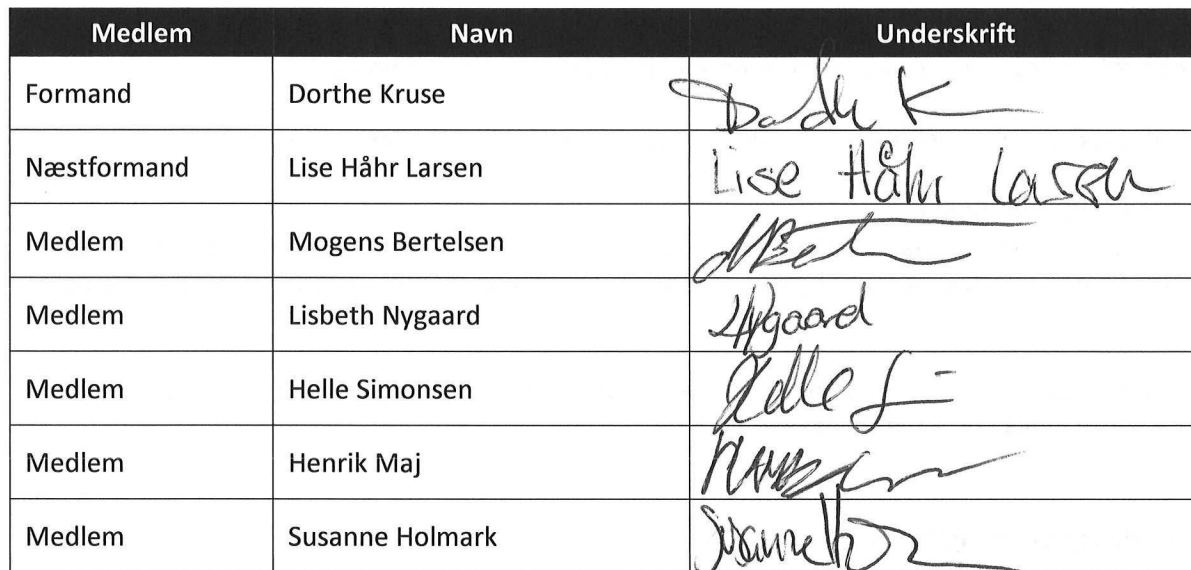 Medlem Navn Underskrift
Formand Dorthe Kruse
Næstformand Lise Håhr Larsen Lise Håhr Larsen
Medlem Mogens Bertelsen
Medlem Lisbeth Nygaard LNygaard
Medlem Helle Simonsen Helle
Medlem Henrik Maj
Medlem Susanne Holmark Susanne